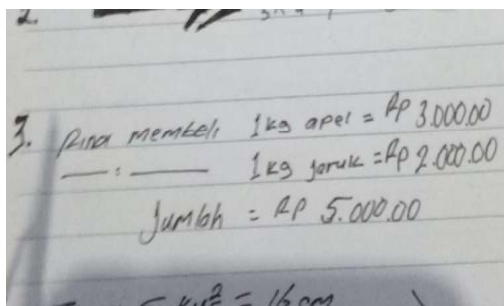 2.
3. Rina membeli 1kg apel = Rp 3.000.00
— : — 1kg jeruk = Rp 2.000.00
Jumlah = Rp 5.000.00
= 16 cm